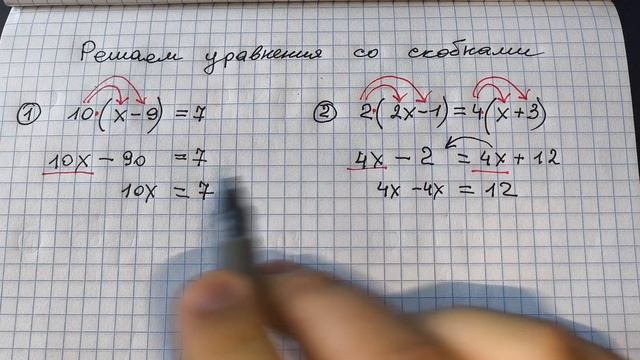 Решаем уравнения со скобками
① 10·(x-9) = 7
10x - 90 = 7
10x = 7
② 2·(2x-1) = 4(x+3)
4x - 2 = 4x + 12
4x - 4x = 12